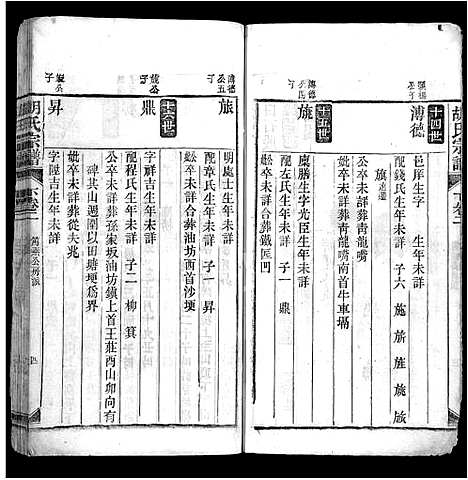 胡氏宗譜
下卷二
十四世
溥德
邑庠生字 生年未詳
配錢氏生年未詳 子六 施 旂 旌 旒 旅
公卒未詳葬青龍嘴
妣卒未詳葬青龍嘴南首牛車堨
十五世
旗
虞勝庠生字光臣生年未詳
配左氏生年未詳 子一 鼎
公卒未詳
妣卒未詳合葬鐵匠凹
溥德公五子
旅
明處士生年未詳
配章氏生年未詳 子一 昇
妣卒未詳合葬油坊西首沙埂
十六世
旗公子
鼎
字祥吉生年未詳
配程氏生年未詳 子二 柳 箕
公卒未詳葬孫家坂油坊鎮上首王莊酉山卯向有
碑其山週圍以田塘埂為界
妣卒未詳葬從夫兆
公子
昇
字陞吉生年未詳
胡氏宗譜
下卷二
公房派